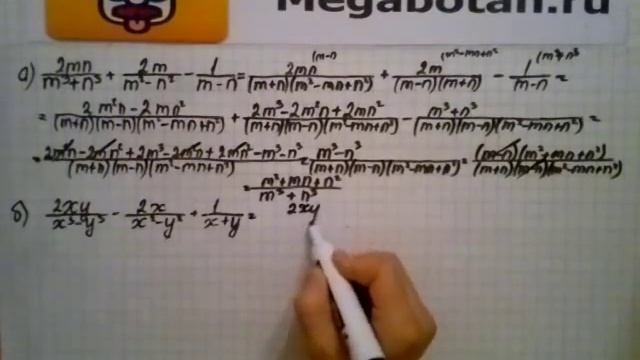 Megabotan.ru
а) 2mn/(m³+n³) + 2m/(m²-n²) - 1/(m-n) = 2mn^(m-n)/((m+n)(m²-mn+n²)) + 2m^(m²-mn+n²)/((m-n)(m+n)) - 1^(m³+n³)/(m-n) =
= (2m²n-2mn²)/((m+n)(m-n)(m²-mn+n²)) + (2m³-2m²n+2mn²)/((m+n)(m-n)(m²-mn+n²)) - (m³+n³)/((m+n)(m-n)(m²-mn+n²)) =
= (2m²n-2mn²+2m³-2m²n+2mn²-m³-n³)/((m+n)(m-n)(m²-mn+n²)) = (m³-n³)/((m+n)(m-n)(m²-mn+n²)) = ((m-n)(m²+mn+n²))/((m+n)(m-n)(m²-mn+n²))
= (m²+mn+n²)/(m³+n³)
б) 2xy/(x³-y³) - 2x/(x²-y²) + 1/(x+y) = 2xy